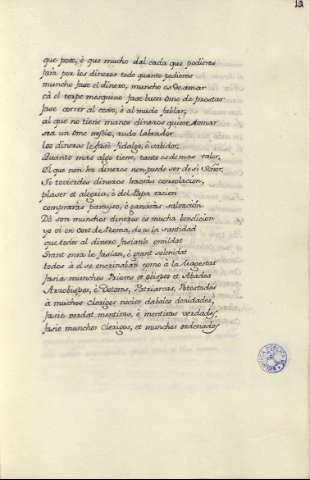 12
que pose, é que mucho dal cada que podiere
faria por los dineros todo quanto pedieres
muncho fase el dinero, muncho es de amar
ca el torpe mesquino fase buen ome de prestar
fase correr al coxo, é al mudo fablar,
al que no tiene manos dineros quiere tomar
sea un ome nescio, rudo labrador
los dineros le fasen fidalgo, é sabidor,
Quanto mas algo tiene, tanto es de mas valor,
El que non ha dineros non puede ser de si Señor,
Si tovierdes dineros habrás consolacion,
plaser et alegria, é del Papa racion
compraras parayso, é ganarás salvacion.
Dó son munchos dineros es mucha bendicion
yo vi en Corte de Roma, do es la santidad
que todos al dinero fasianle omildat
Grant onra le fasian, é grant solenidat
todos á él se enclinaban como á la Magestat
fasia munchos Priores et obispos et Abades
Arzobispos, é Dotores, Patriarcas, Potestades
á muchos Clerigos necios dábales dinidades,
fasie verdat mentiras, é mentiras verdades.
fasie munchos Clerigos, et munchos ordenados